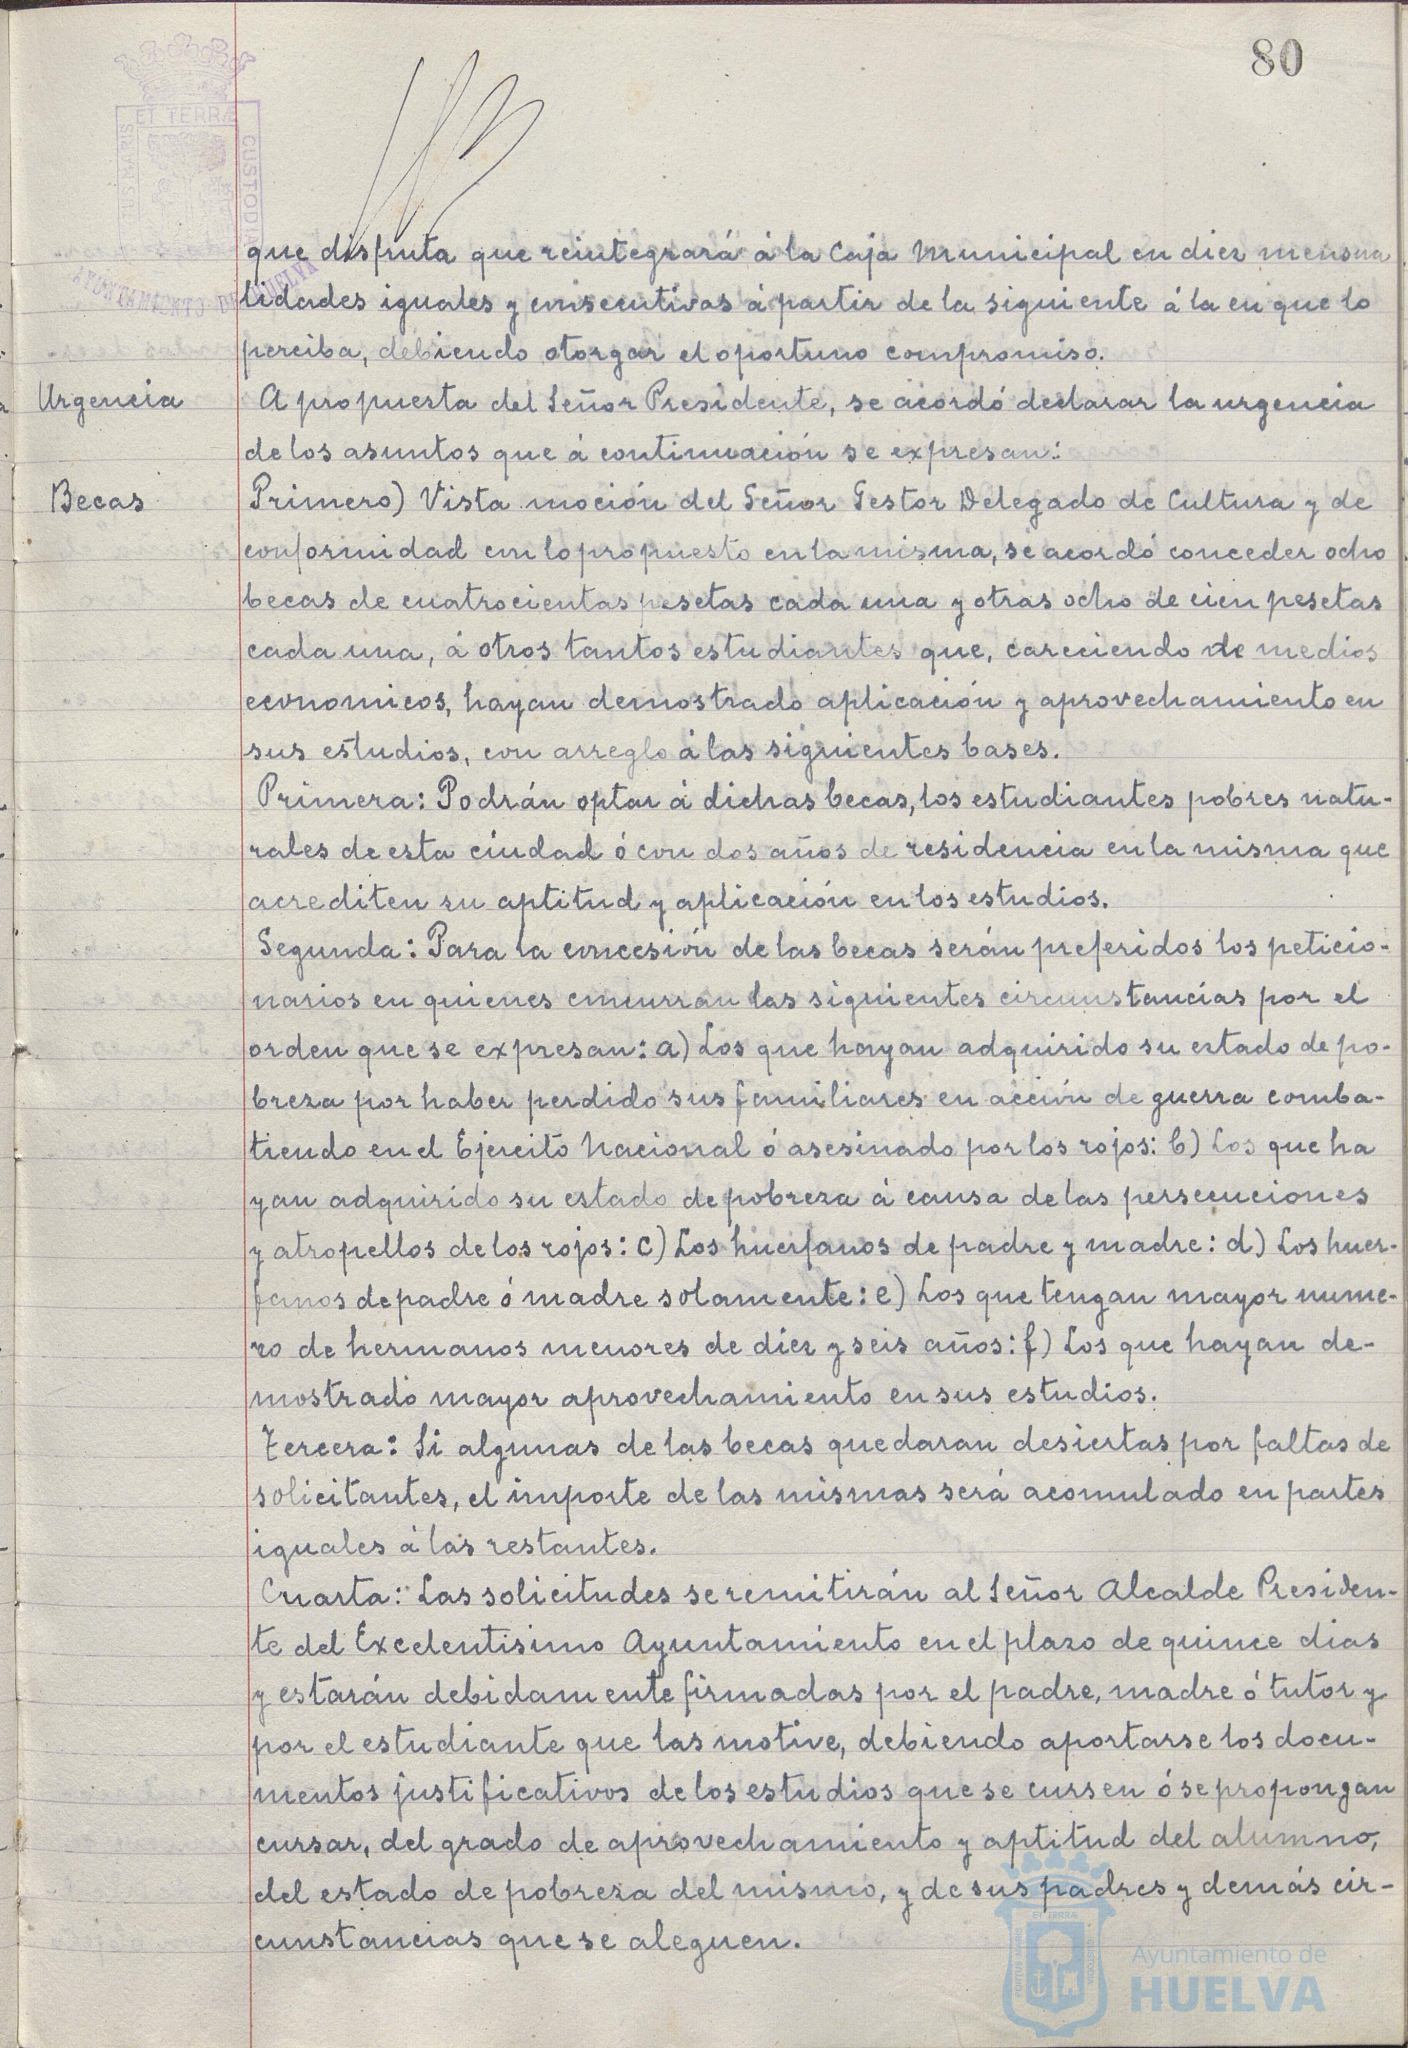 80
ET TERRÆ
CUSTODIA
AYUNTAMIENTO DE HUELVA
que disfruta que reintegrará á la Caja Municipal en diez mensua
lidades iguales y consecutivas á partir de la siguiente á la en que lo
perciba, debiendo otorgar el oportuno compromiso.
Urgencia
A propuesta del Señor Presidente, se acordó declarar la urgencia
de los asuntos que á continuación se expresan:
Becas
Primero) Vista moción del Señor Gestor Delegado de Cultura y de
conformidad con lo propuesto en la misma, se acordó conceder ocho
becas de cuatrocientas pesetas cada una y otras ocho de cien pesetas
cada una, á otros tantos estudiantes que, careciendo de medios
economicos, hayan demostrado aplicación y aprovechamiento en
sus estudios, con arreglo á las siguientes bases.
Primera: Podrán optar á dichas becas, los estudiantes pobres natu-
rales de esta ciudad ó con dos años de residencia en la misma que
acrediten su aptitud y aplicación en los estudios.
Segunda: Para la concesión de las becas serán preferidos los peticio-
narios en quienes concurran las siguientes circunstancias por el
orden que se expresan: a) Los que hayan adquirido su estado de po-
breza por haber perdido sus familiares en acción de guerra comba-
tiendo en el Ejercito Nacional ó asesinado por los rojos: b) Los que ha
yan adquirido su estado de pobreza á causa de las persecuciones
y atropellos de los rojos: c) Los huerfanos de padre y madre: d) Los huer-
fanos de padre ó madre solamente: e) Los que tengan mayor nume-
ro de hermanos menores de diez y seis años: f) Los que hayan de-
mostrado mayor aprovechamiento en sus estudios.
Tercera: Si algunas de las becas quedaran desiertas por faltas de
solicitantes, el importe de las mismas será acomulado en partes
iguales á las restantes.
Cuarta: Las solicitudes se remitirán al Señor Alcalde Presiden-
te del Excelentisimo Ayuntamiento en el plazo de quince dias
y estarán debidamente firmadas por el padre, madre ó tutor y
por el estudiante que las motive, debiendo aportarse los docu-
mentos justificativos de los estudios que se cursen ó se propongan
cursar, del grado de aprovechamiento y aptitud del alumno,
del estado de pobreza del mismo, y de sus padres y demás cir-
cunstancias que se aleguen.
Ayuntamiento de
HUELVA